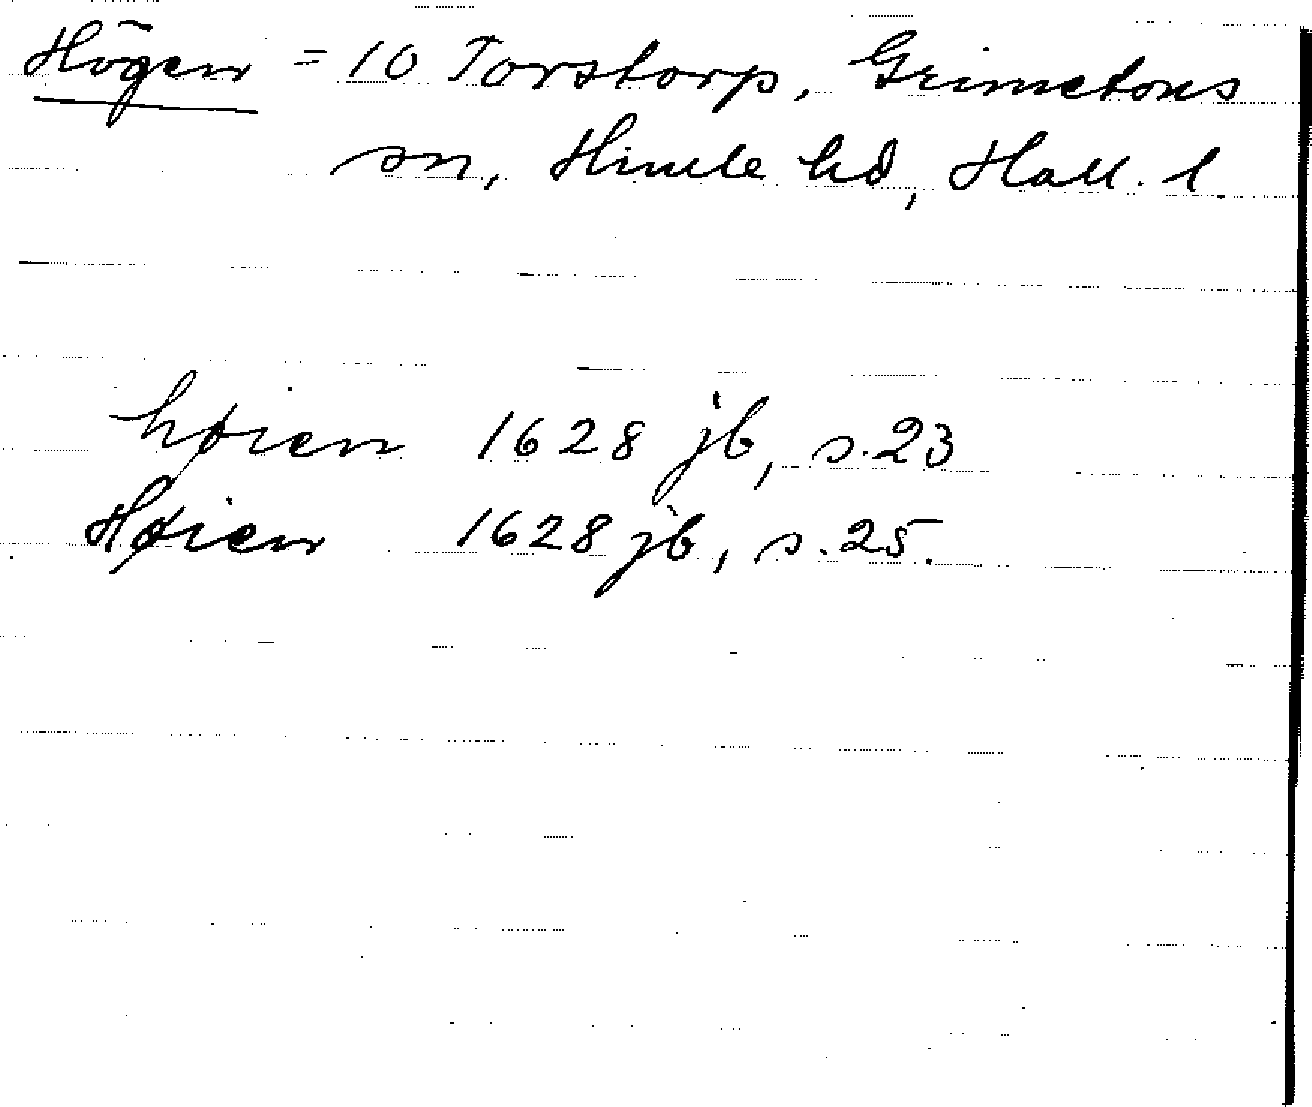 Högen = 10 Torstorp, Grimetons
sn, Himle hd, Hall. l.
høien 1628 jb, s. 23
Høien 1628 jb, s. 25.